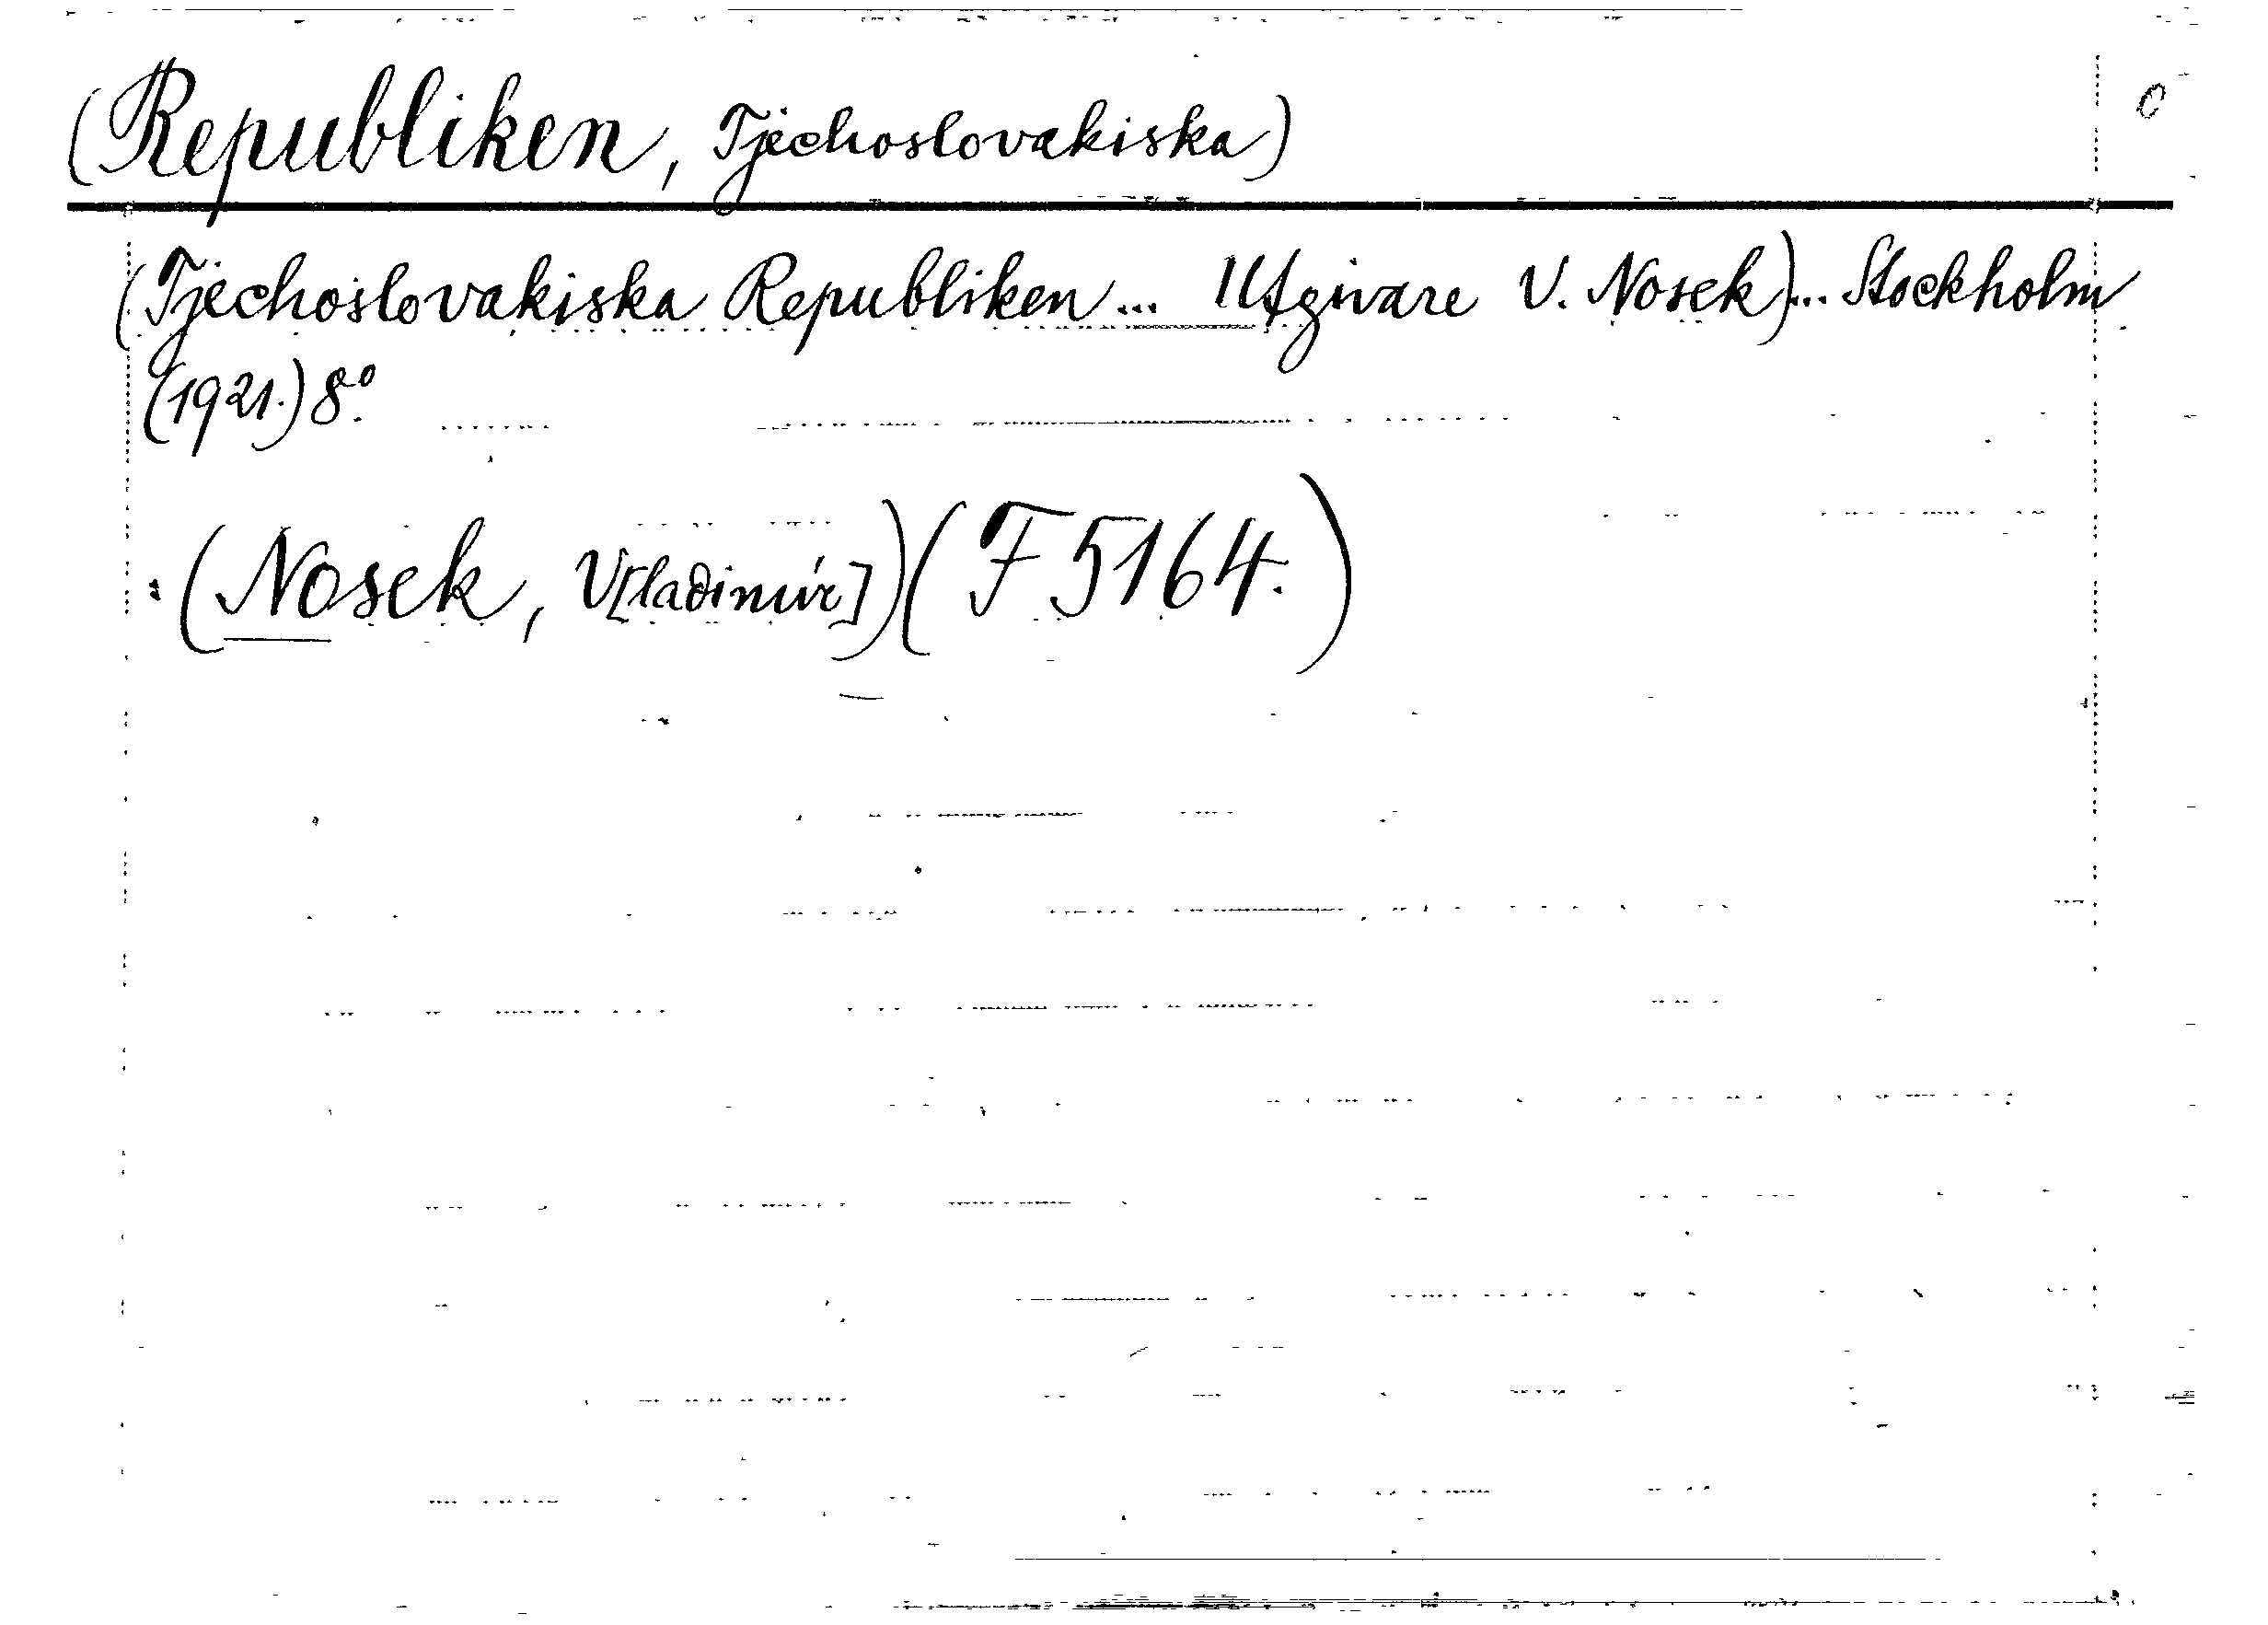 (Republiken, Tjechoslovakiska)
(Tjechoslovakiska Republiken... Utgivare V. Nosek)... Stockholm
(1921.) 8.º
(Nosek, V[ladimír]) (F 5164.)